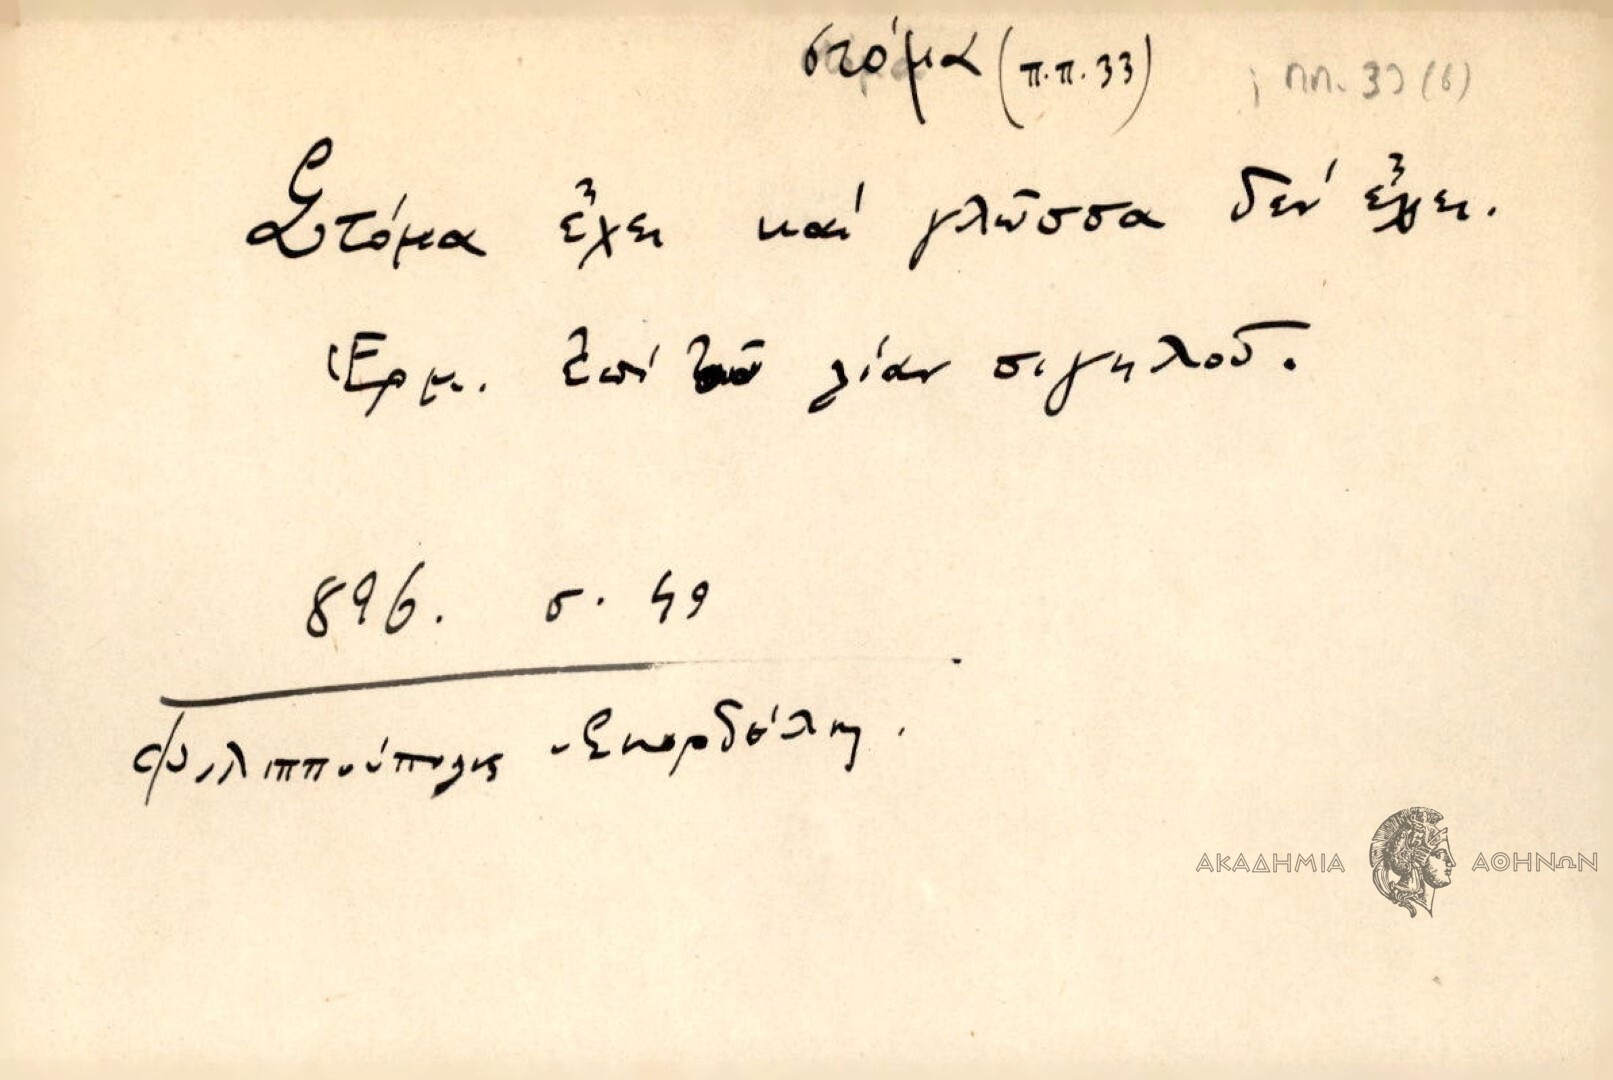 στόμα (π.π. 33) ππ. 33 (6)
Στόμα ἔχει καί γλῶσσα δέν ἔχει.
Ἑρμ. Ἐπί τοῦ λίαν σιγηλοῦ.
896. σ. 49
Φιλιππούπολις - Σκορδέλη.
ΑΚΑΔΗΜΙΑ ΑΘΗΝΩΝ